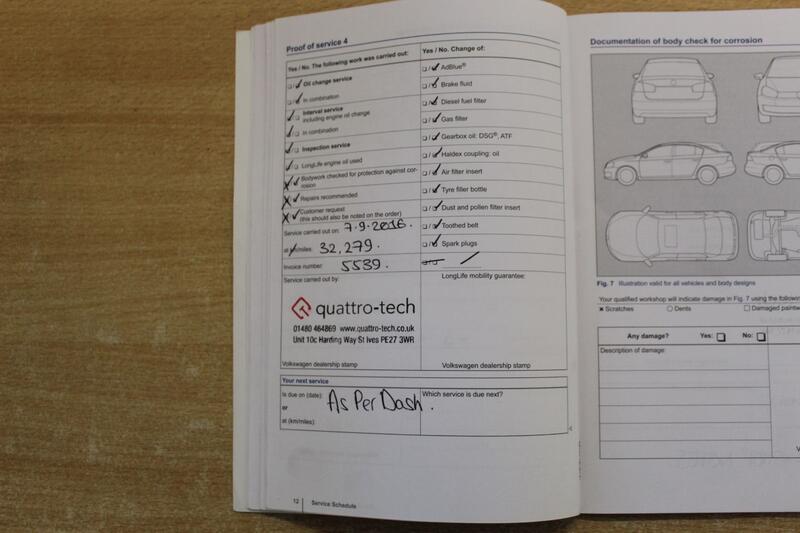 Proof of service 4
Yes / No. The following work was carried out:
❑/✓ Oil change service
❑/✓ In combination
✓/❑ Interval service
including engine oil change
✓/❑ In combination
✓/❑ Inspection service
✓/❑ LongLife engine oil used
✗/✓ Bodywork checked for protection against cor-
rosion
✗/✓ Repairs recommended
✗/✓ Customer request
(this should also be noted on the order)
Service carried out on: 7.9.2016.
at km/miles: 32,279.
Invoice number: 5539.
Service carried out by:
quattro-tech
01480 464869 www.quattro-tech.co.uk
Unit 10c Harding Way St Ives PE27 3WR
Volkswagen dealership stamp
Yes / No. Change of:
❑/✓ AdBlue®
❑/✓ Brake fluid
❑/✓ Diesel fuel filter
❑/✓ Gas filter
❑/✓ Gearbox oil: DSG®, ATF
❑/✓ Haldex coupling: oil
❑/✓ Air filter insert
❑/✓ Tyre filler bottle
❑/✓ Dust and pollen filter insert
❑/✓ Toothed belt
❑/✓ Spark plugs
LongLife mobility guarantee:
Volkswagen dealership stamp
Your next service
Is due on (date):
or
at (km/miles):
As Per Dash.
Which service is due next?
12 Service Schedule
Documentation of body check for corrosion
Fig. 7 Illustration valid for all vehicles and body designs
Your qualified workshop will indicate damage in Fig. 7 using the
✗ Scratches ○ Dents ❑ Damaged
Any damage? Yes: ❑ No: ❑
Description of damage: